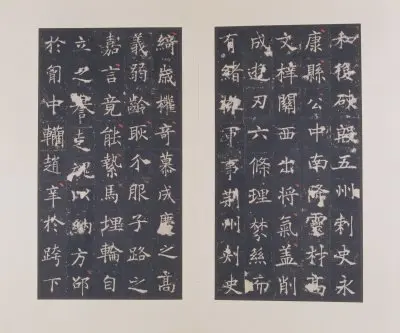 和復硤殷五州刺史永
康縣公中南降靈材高
文梓關西出將氣蓋削
成遊刃六條理棼絲而
有緒軍事荊州刺史
綺歲權奇慕成慶之高
義弱齡耿介服子路之
嘉言竟能縶馬埋輪自
立之納方邵
於匈中轥趙辛於跨下